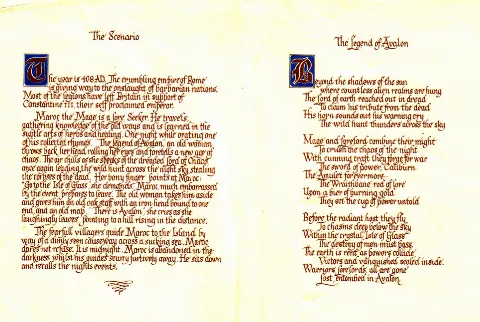 The Scenario
The year is 408 AD. The crumbling empire of Rome
is giving way to the onslaught of barbarian nations.
Most of the legions have left Britain in support of
Constantine III, their self proclaimed emperor.
Maroc the Mage is a lore Seeker. He travels
gathering knowledge of the old ways and is learned in the
subtle arts of herbs and healing. One night while orating one
of his collected rhymes, 'The legend of Avalon', an old woman
throws back her head, rolling her eyes and foretells a new age of
chaos. The air chills as she speaks of the dreaded lord of Chaos
once again leading the wild hunt across the night sky, stealing
the corpses of the dead. Her bony finger points at Maroc.
'Go to the Isle of Glass' she demands. Maroc, much embarrassed
by the event, prepares to leave. The old woman takes him aside
and gives him an oak staff with an iron head bound to one
end, and an old map. 'There is Avalon', she cries as she
laughingly leaves, pointing to a hill rising in the distance.
The fearful villagers guide Maroc to the Island by
way of a dimly seen causeway across a sucking sea. Maroc
dares not refuse. It is midnight. Maroc is abandoned in the
darkness whilst his guides scurry furtively away. He sits down
and recalls the nights events.
The Legend of Avalon
Beyond the shadows of the sun
where countless alien realms are hung
The lord of earth reached out in dread
To claim his tribute from the dead
His horn sounds out his warning cry
The wild hunt thunders across the sky
Mage and forelord combine their might
To crush the chaos of the night
With cunning craft they forge for war
The sword of power, Caliburn
The Amulet forevermore
The Wraithbane rod of lore
Upon a bier of burning gold
They set the cup of power untold
Before the radiant host they fly
To chasms deep below the sky
Within the crystal Isle of Glass
The destiny of men must pass
The earth is rent as powers collide
Victors and vanquished sealed inside
Warriors, forelords, all are gone
Lost, entombed in Avalon